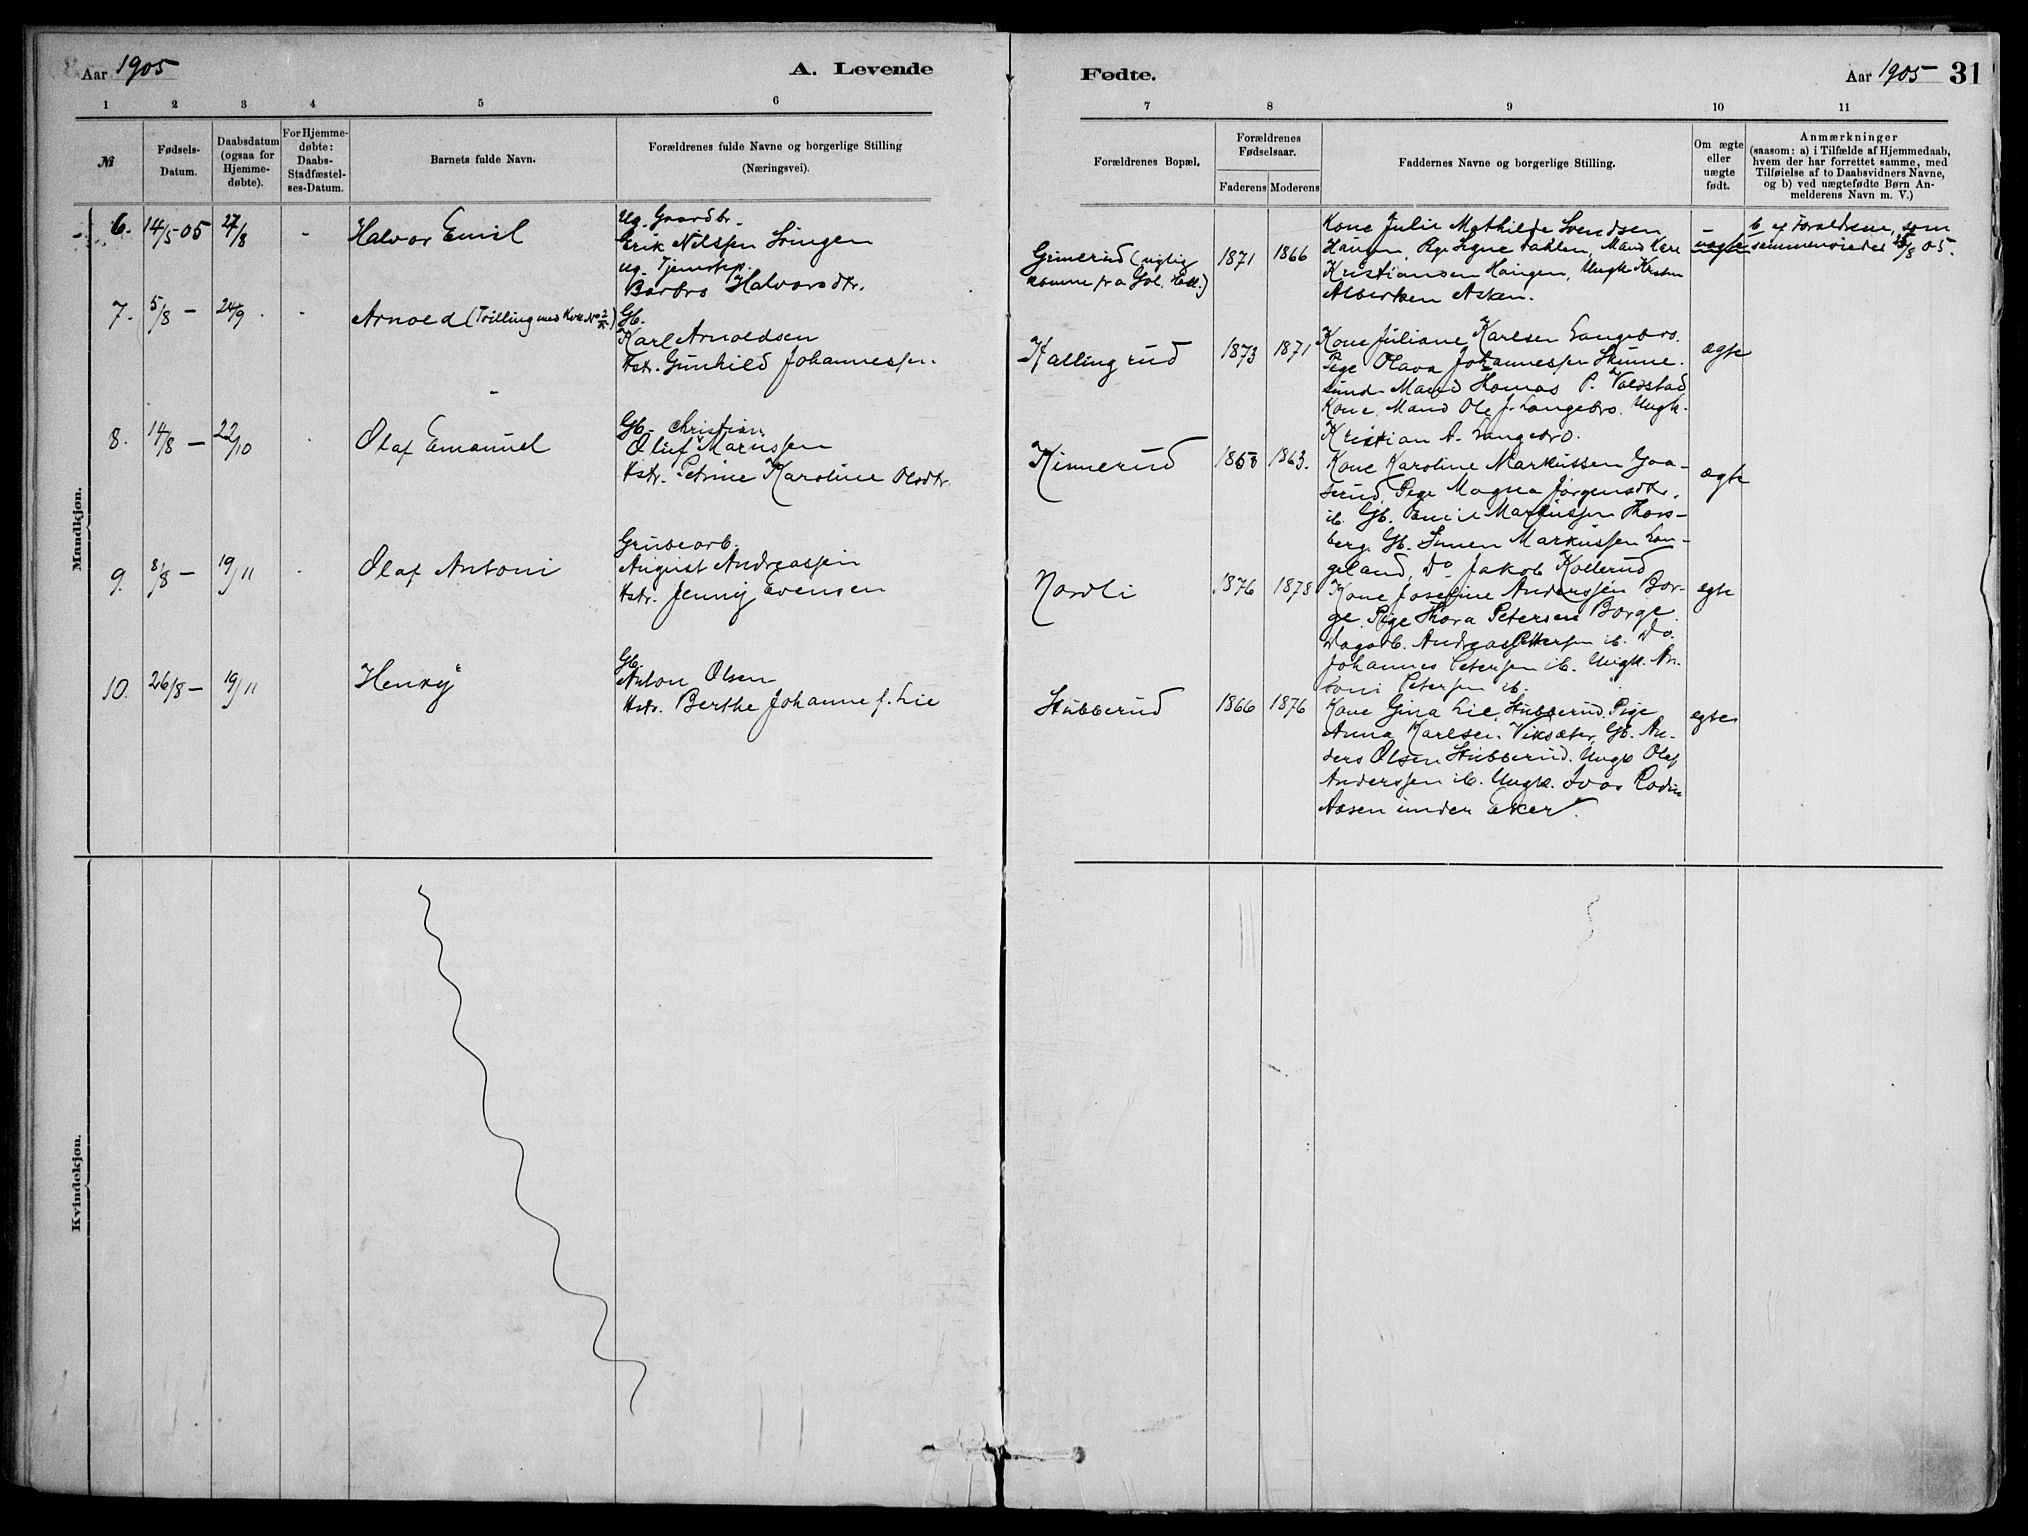 Aar 1905
A. Levende
Fødte.
Aar 1905
31
1 2 3 4 5 6
7 8 9 10 11
№
Fødsels-
Datum.
Daabsdatum
(ogsaa for
Hjemme-
døbte).
For Hjemme-
døbte:
Daabs-
Stadfæstel-
ses-Datum.
Barnets fulde Navn.
Forældrenes fulde Navne og borgerlige Stilling
(Næringsvei).
Forældrenes Bopæl.
Forældrenes
Fødselsaar.
Faderens
Moderens
Faddernes Navne og borgerlige Stilling.
Om ægte
eller
uægte
født.
Anmærkninger
(saasom: a) i Tilfælde af Hjemmedaab,
hvem der har forrettet samme, med
Tilføielse af to Daabsvidners Navne,
og b) ved uægtefødte Børn An-
melderens Navn m. V.)
Mandkjøn.
6.
14/5 05
27/8
-
Halvor Emil
Ug. Gaardbr.
Erik Nilssen Svingen
ug. Tjenstep.
Barbro Halvorsdtr.
Grimerud (nylig
komne fra Gol, Hall.)
1871
1866
Kone Julie Mathilde Svendsen
Haugen, Pige Signe Dahlen, Mand Kare
Kristiansen Haugen, Ungk. Kristen
Albertsen Asken.
uægte
b af Forældrene, som
sammenviedes /8 05.
7.
5/8 -
24/9
-
Arnold (Trilling med Kvk. No
Gb.
Karl Arnoldsen
Hstr. Gunhild Johannessen.
Hallingrud
1873
1871
Kone Juliane Karlsen Langebro.
Pige Olava Johannessen Skinne-
sund. Mand Thomas P. Valdstad
Kone. Mand Ole J. Langebro. Ungk.
Kristian A. Langebro.
ægte
8.
14/8 -
22/10
Olaf Emanuel
Gb. Christian
Oluf Marussen
Hstr. Petrine Karoline Olsdtr.
Kinnerud
1863.
Kone Karoline Markussen Gaa-
serud, Pige Magna Jørgensdtr.
ib. Gb. Emil Markussen Thors-
berg. Gb. Simen Markussen Lan-
geland, Do Jakob Kollerud
ægte
9.
8/8 -
19/11
Olaf Antoni
Grubearb.
August Andreassen
Hstr. Jenny Evensen
Nordli
1876
1878
Kone Josefine Anderssen Bor-
ge. Pige Thora Petersen Borge.
Dagarb. Andreas Pettersen ib. Do.
Johannes Petersen ib. Ungk. An-
toni Petersen ib.
egte
10.
26/8 -
19/11
Henry
Gb.
Anton Olsen
Hstr. Berthe Johanne f. Lie
Stubberud
1866
1876
Kone Gina Lie, Stubberud. Pige
Anna Karlsen Viksæter, Gb. An-
ders Olsen Stubberud. Ungk. Olaf
Anderssen ib. Ungk. Ivar Rodin
Aasen under Eker.
egte
Kvindekjøn.